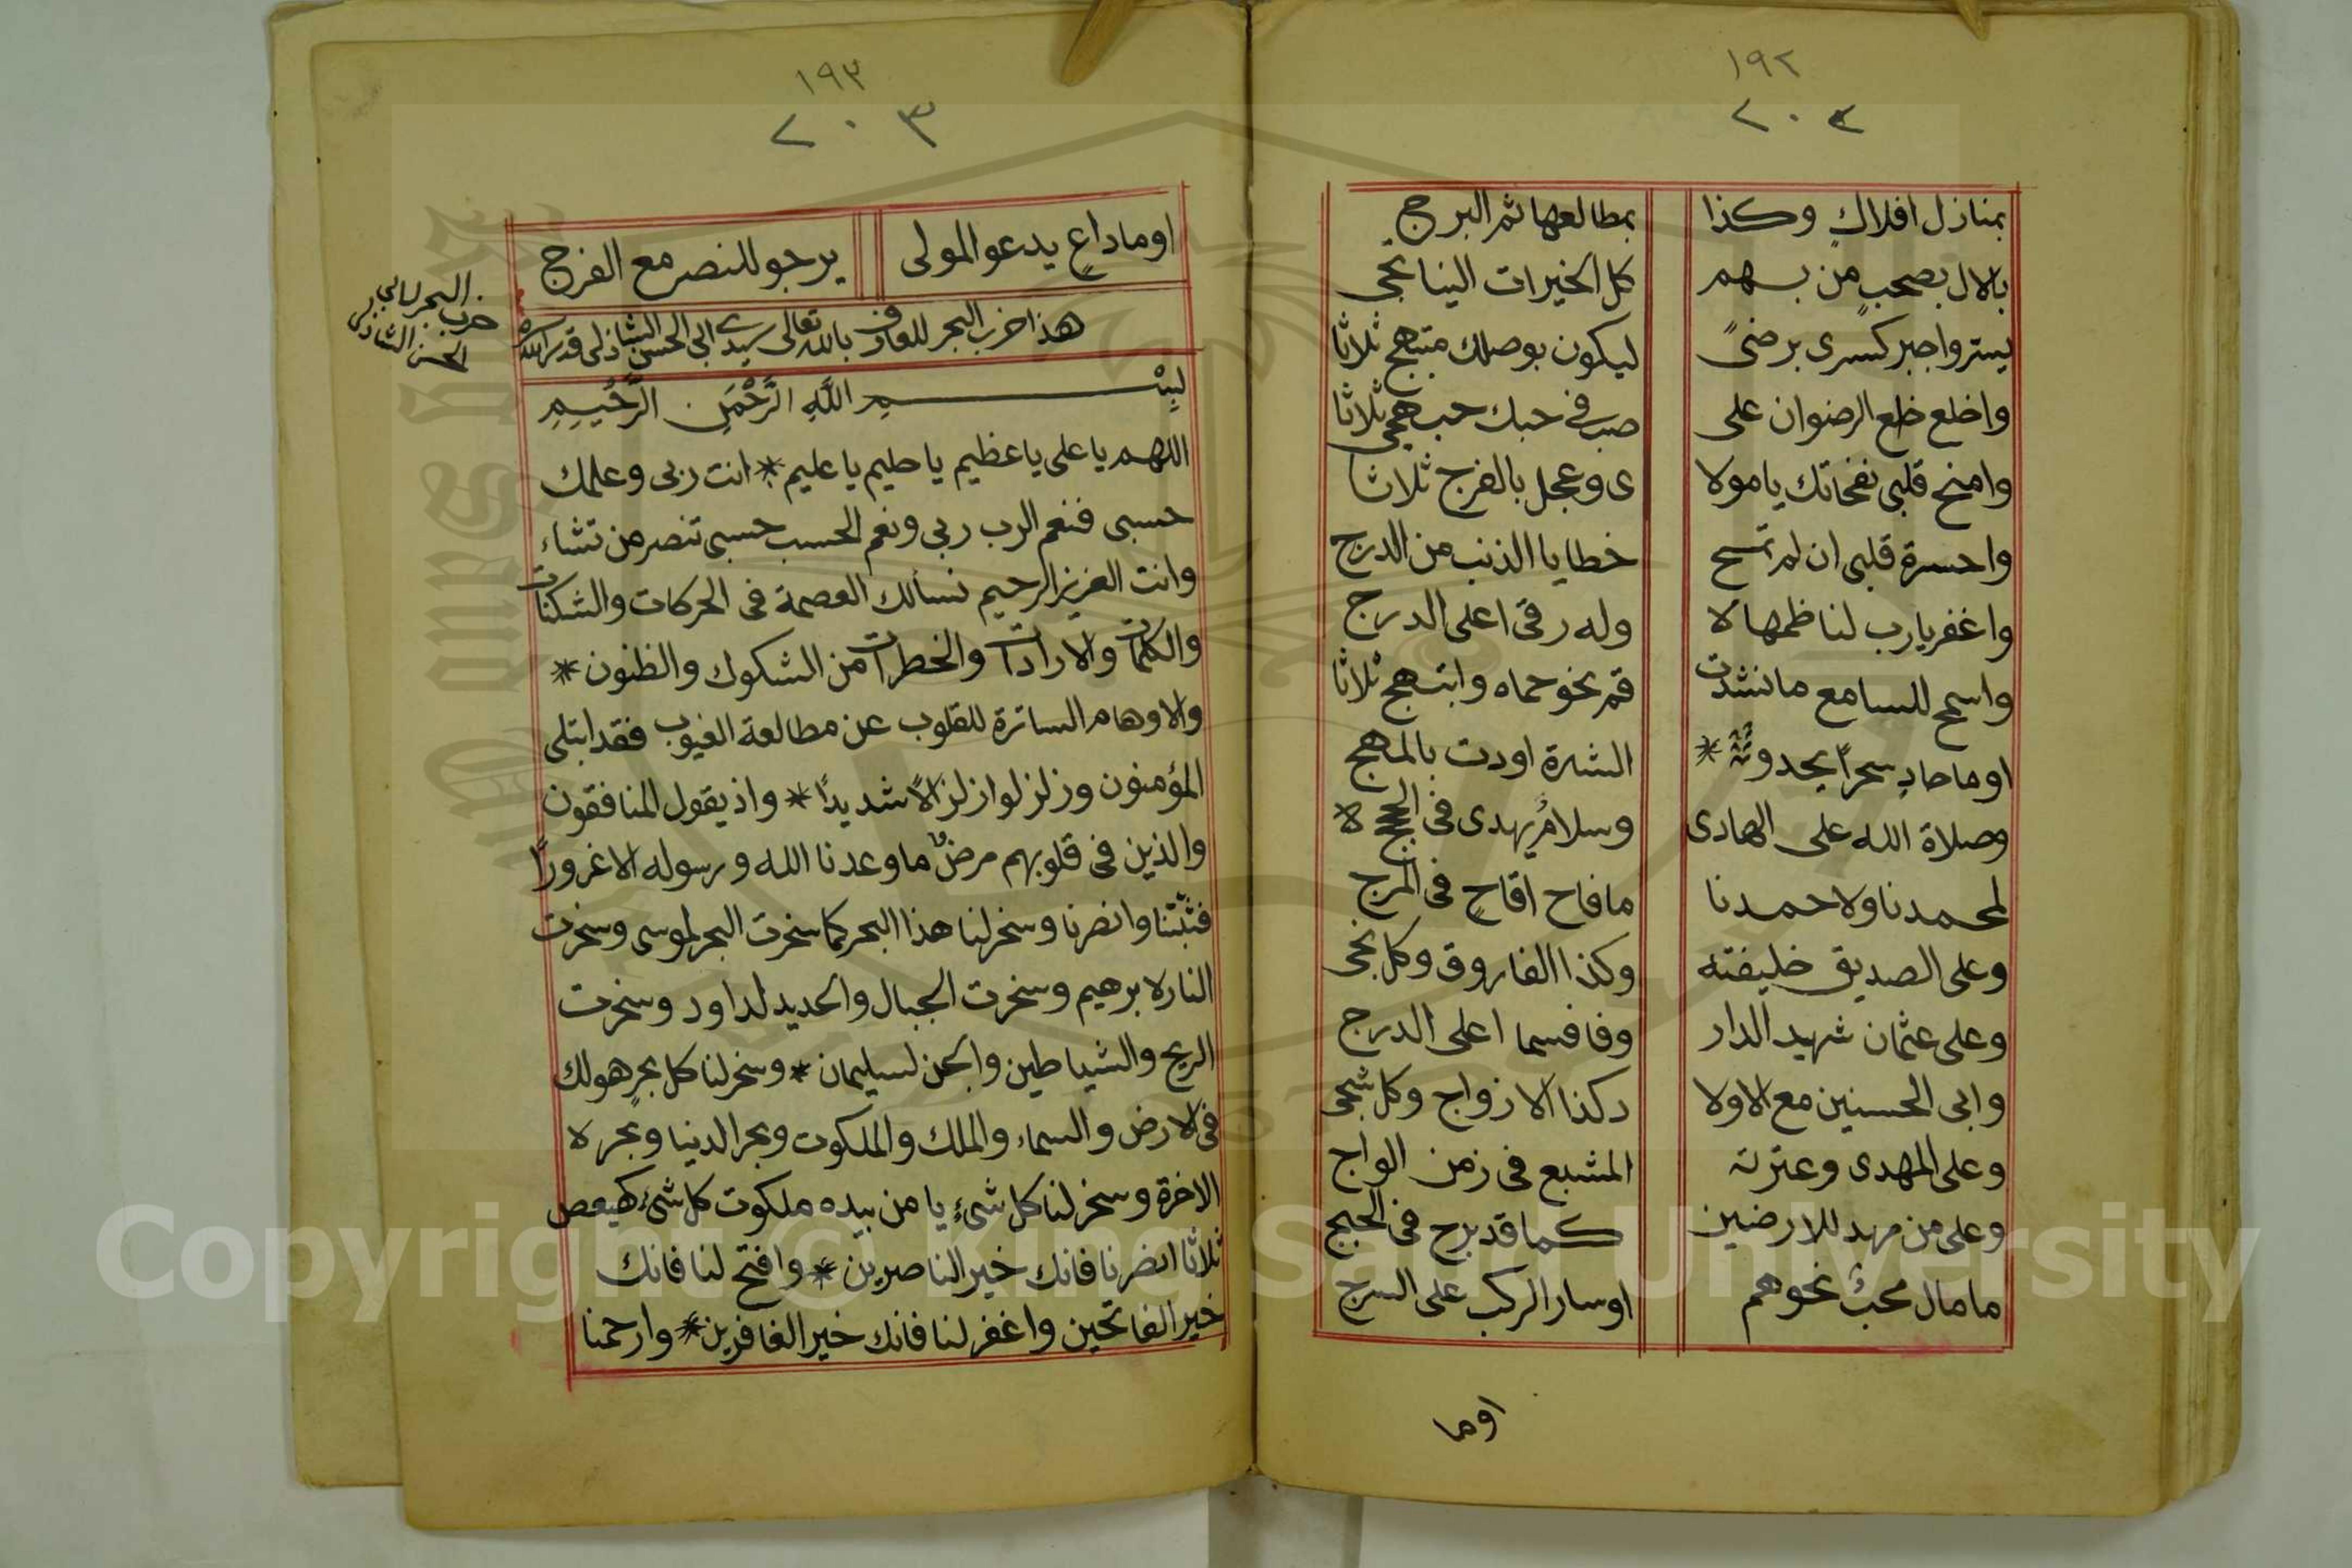 ١٩٢
٢٠٢
بمنازل افلاكٍ وكذا بمطالعها ثم البرج
بالال بصحبٍ من بهم كل الخيرات الينا تجى
يستر واجبر كسرى برضىً ليكون بوصلك مبتهج ثلاثا
واخلع خلع الرضوان على صب فى حبك حب همجى ثلاثا
وامنح قلبى نفحاتك يامولا ى وعجل بالفرج ثلاثا
واحسرة قلبى ان لم تمسح خطايا الذنب من الدرج
واغفر يارب لناظمها لا وله رقى اعلى الدرج
واسمح للسامع مانشدت قم نحو حماه وابتهج ثلاثا
اوما حادٍ سحراً يحدو الشدة اودت بالمهج
وصلاة الله على الهادى وسلامٌ يهدى فى الحجج لا
لمحمدنا ولاحمدنا مافاح اقاحٍ فى المرج
وعلى الصديق خليفته وكذا الفاروق وكل نجى
وعلى عثمان شهيد الدار وفا فسما اعلى الدرج
وابى الحسنين مع الاولا د كذا الازواج وكل شجى
وعلى المهدى وعترته المشبع فى زمن الواج
وعلى من مهد للارضين كما قد برح فى الحجج
مامال محبٌ نحوهم اوسار الركب على السرج
اوما
١٩٣
٢٠٣
اوما داعٍ يدعو المولى يرجو للنصر مع الفرج
هذا حزب البحر للعارف بالله تعالى سيدى ابى الحسن الشاذلى قدس الله سره
حزب البحر لابي
الحسن الشاذلي
بِسْمِ اللَّهِ الرَّحْمَنِ الرَّحِيمِ
اللهم يا على يا عظيم يا حليم يا عليم * انت ربى وعلمك
حسبى فنعم الرب ربى ونعم الحسب حسبى تنصر من تشاء
وانت العزيز الرحيم نسألك العصمة فى الحركات والسكنات
والكلمات والارادات والخطرات من الشكوك والظنون *
والاوهام الساترة للقلوب عن مطالعة الغيوب فقد ابتلى
المؤمنون وزلزلوا زلزالاً شديداً * واذ يقول المنافقون
والذين فى قلوبهم مرضٌ ما وعدنا الله ورسوله الا غروراً
فثبّتنا وانصرنا وسخر لنا هذا البحر كما سخرت البحر لموسى وسخرت
النار لابرهيم وسخرت الجبال والحديد لداود وسخرت
الريح والشياطين والجن لسليمان * وسخر لنا كل بحرٍ هولك
فى الارض والسماء والملك والملكوت وبحر الدنيا وبحر لا
الاخرة وسخر لنا كل شىءٍ يا من بيده ملكوت كل شىء كهيعص
ثلاثا انصرنا فانك خير الناصرين * وافتح لنا فانك
خير الفاتحين واغفر لنا فانك خير الغافرين * وارحمنا
Copyright © King Saud University